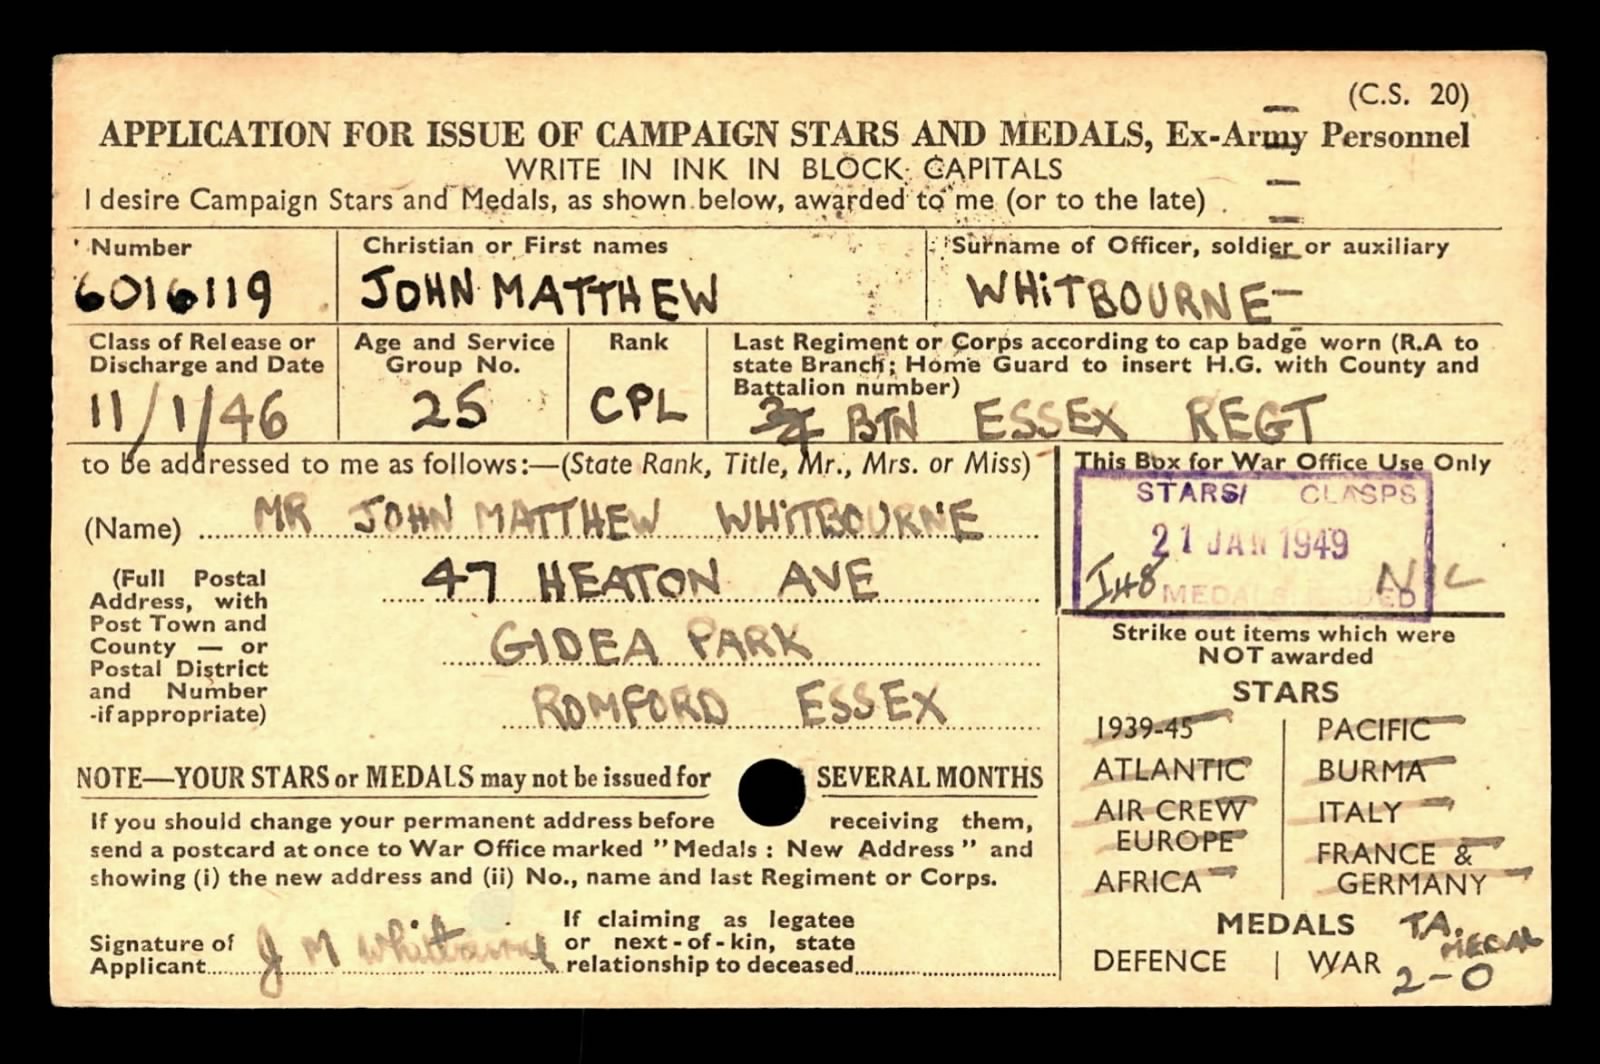 (C.S. 20)
APPLICATION FOR ISSUE OF CAMPAIGN STARS AND MEDALS, Ex-Army Personnel
WRITE IN INK IN BLOCK CAPITALS
I desire Campaign Stars and Medals, as shown below, awarded to me (or to the late)
Number
6016119
Christian or First names
JOHN MATTHEW
Surname of Officer, soldier or auxiliary
WHiTBOURNE
Class of Release or
Discharge and Date
11/1/46
Age and Service
Group No.
25
Rank
CPL
Last Regiment or Corps according to cap badge worn (R.A to
state Branch; Home Guard to insert H.G. with County and
Battalion number)
BTN ESSEX REGT
to be addressed to me as follows:—(State Rank, Title, Mr., Mrs. or Miss)
(Name) MR JOHN MATTHEW WHiTBOURNE
(Full Postal
Address, with
Post Town and
County — or
Postal District
and Number
-if appropriate)
47 HEATON AVE
GIDEA PARK
ROMFORD ESSEX
This Box for War Office Use Only
STARS/ CLASPS
21 JAN 1949
MEDALS ISSUED
NOTE—YOUR STARS or MEDALS may not be issued for SEVERAL MONTHS
If you should change your permanent address before receiving them,
send a postcard at once to War Office marked "Medals : New Address" and
showing (i) the new address and (ii) No., name and last Regiment or Corps.
Signature of
Applicant
J M Whitbourne
If claiming as legatee
or next-of-kin, state
relationship to deceased
Strike out items which were
NOT awarded
STARS
1939-45
ATLANTIC
AIR CREW
EUROPE
AFRICA
PACIFIC
BURMA
ITALY
FRANCE &
GERMANY
MEDALS
DEFENCE | WAR
T.A.
MEDAL
2-0